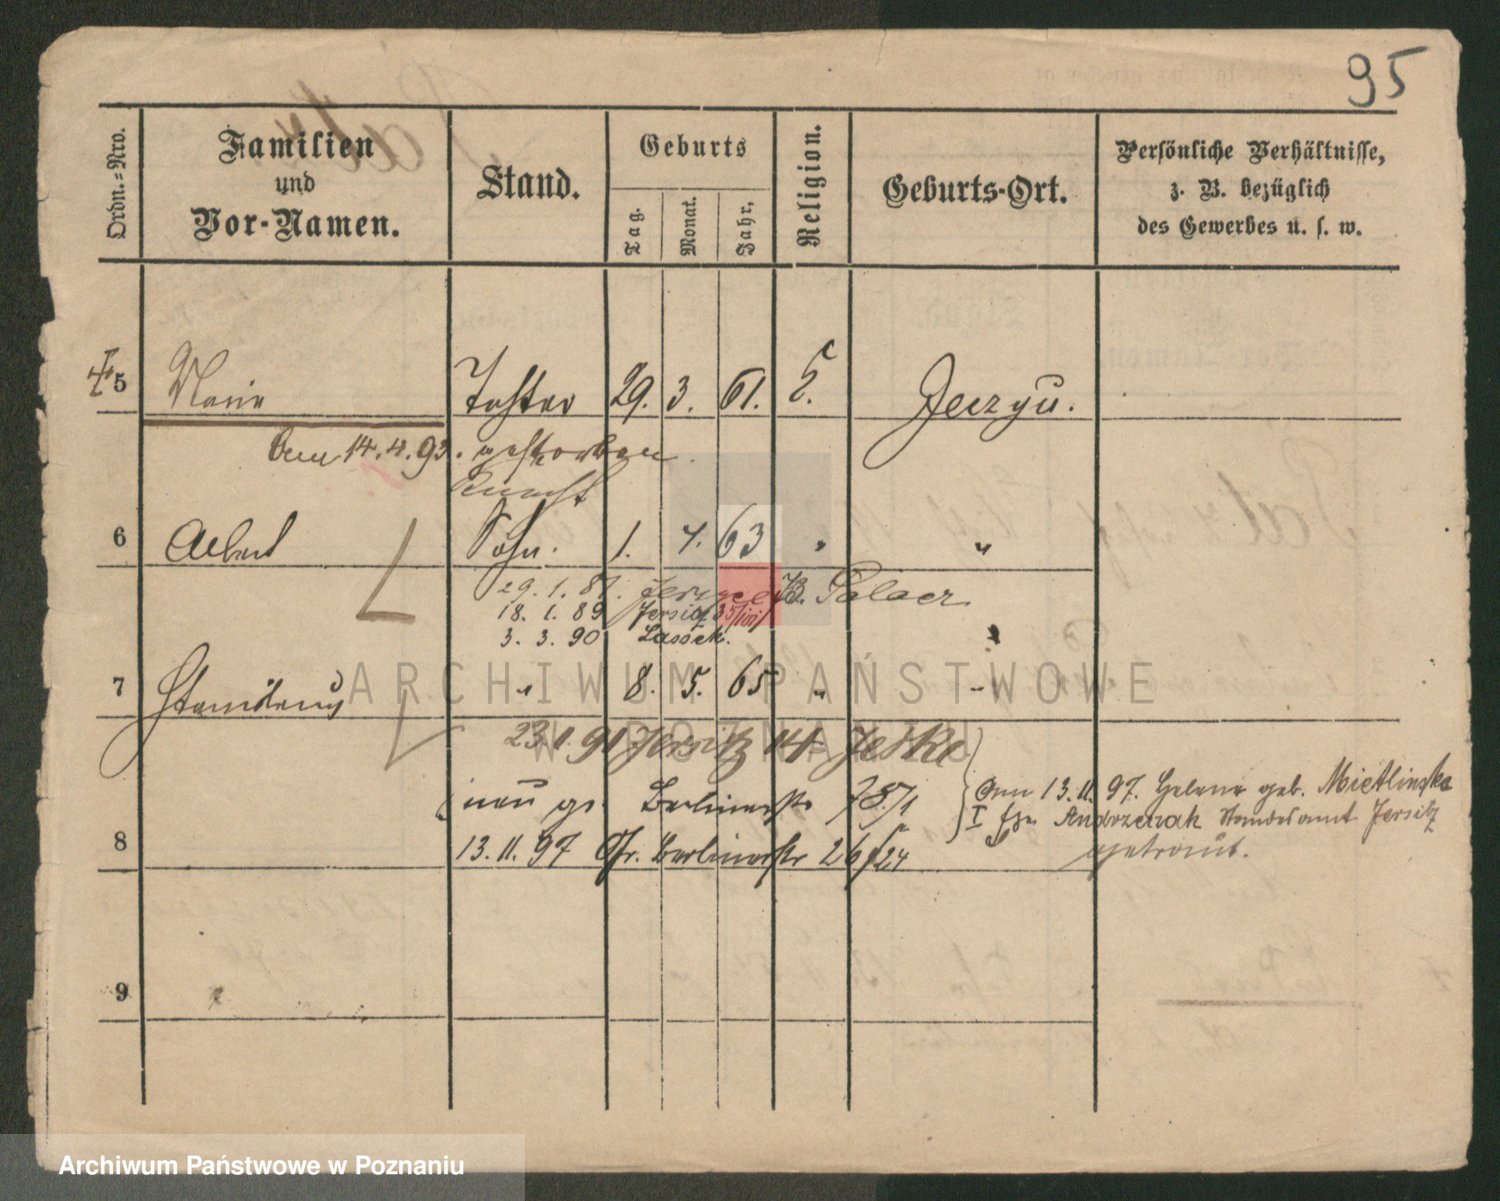 95
Ordn.=Nro.
Familien
und
Vor-Namen.
Stand.
Geburts
Tag.
Monat.
Jahr.
Religion.
Geburts-Ort.
Persönliche Verhältnisse,
z. B. bezüglich
des Gewerbes u. s. w.
5 Marie Tochter 29. 3. 61.
Am 14.4.93. gestorben.
Knecht
6 Albert Sohn. 1. 63 " "
29. 1. 87.
18. 1. 89 Jersitz 35/101
3. 3. 90 Lassek.
7 Stanislaus " 8. 5. 65 " "
23.1.91 Jersitz 14 Jeske
neu gs. Berlinerstr 78/1
Am 13.11.97. Helene geb. Mietlinska
I Andrzejak Standesamt Jersitz
8 13.11.97 Gr. Berlinerstr 26/24
getraut.
9
ARCHIWUM PAŃSTWOWE
W POZNANIU
Archiwum Państwowe w Poznaniu